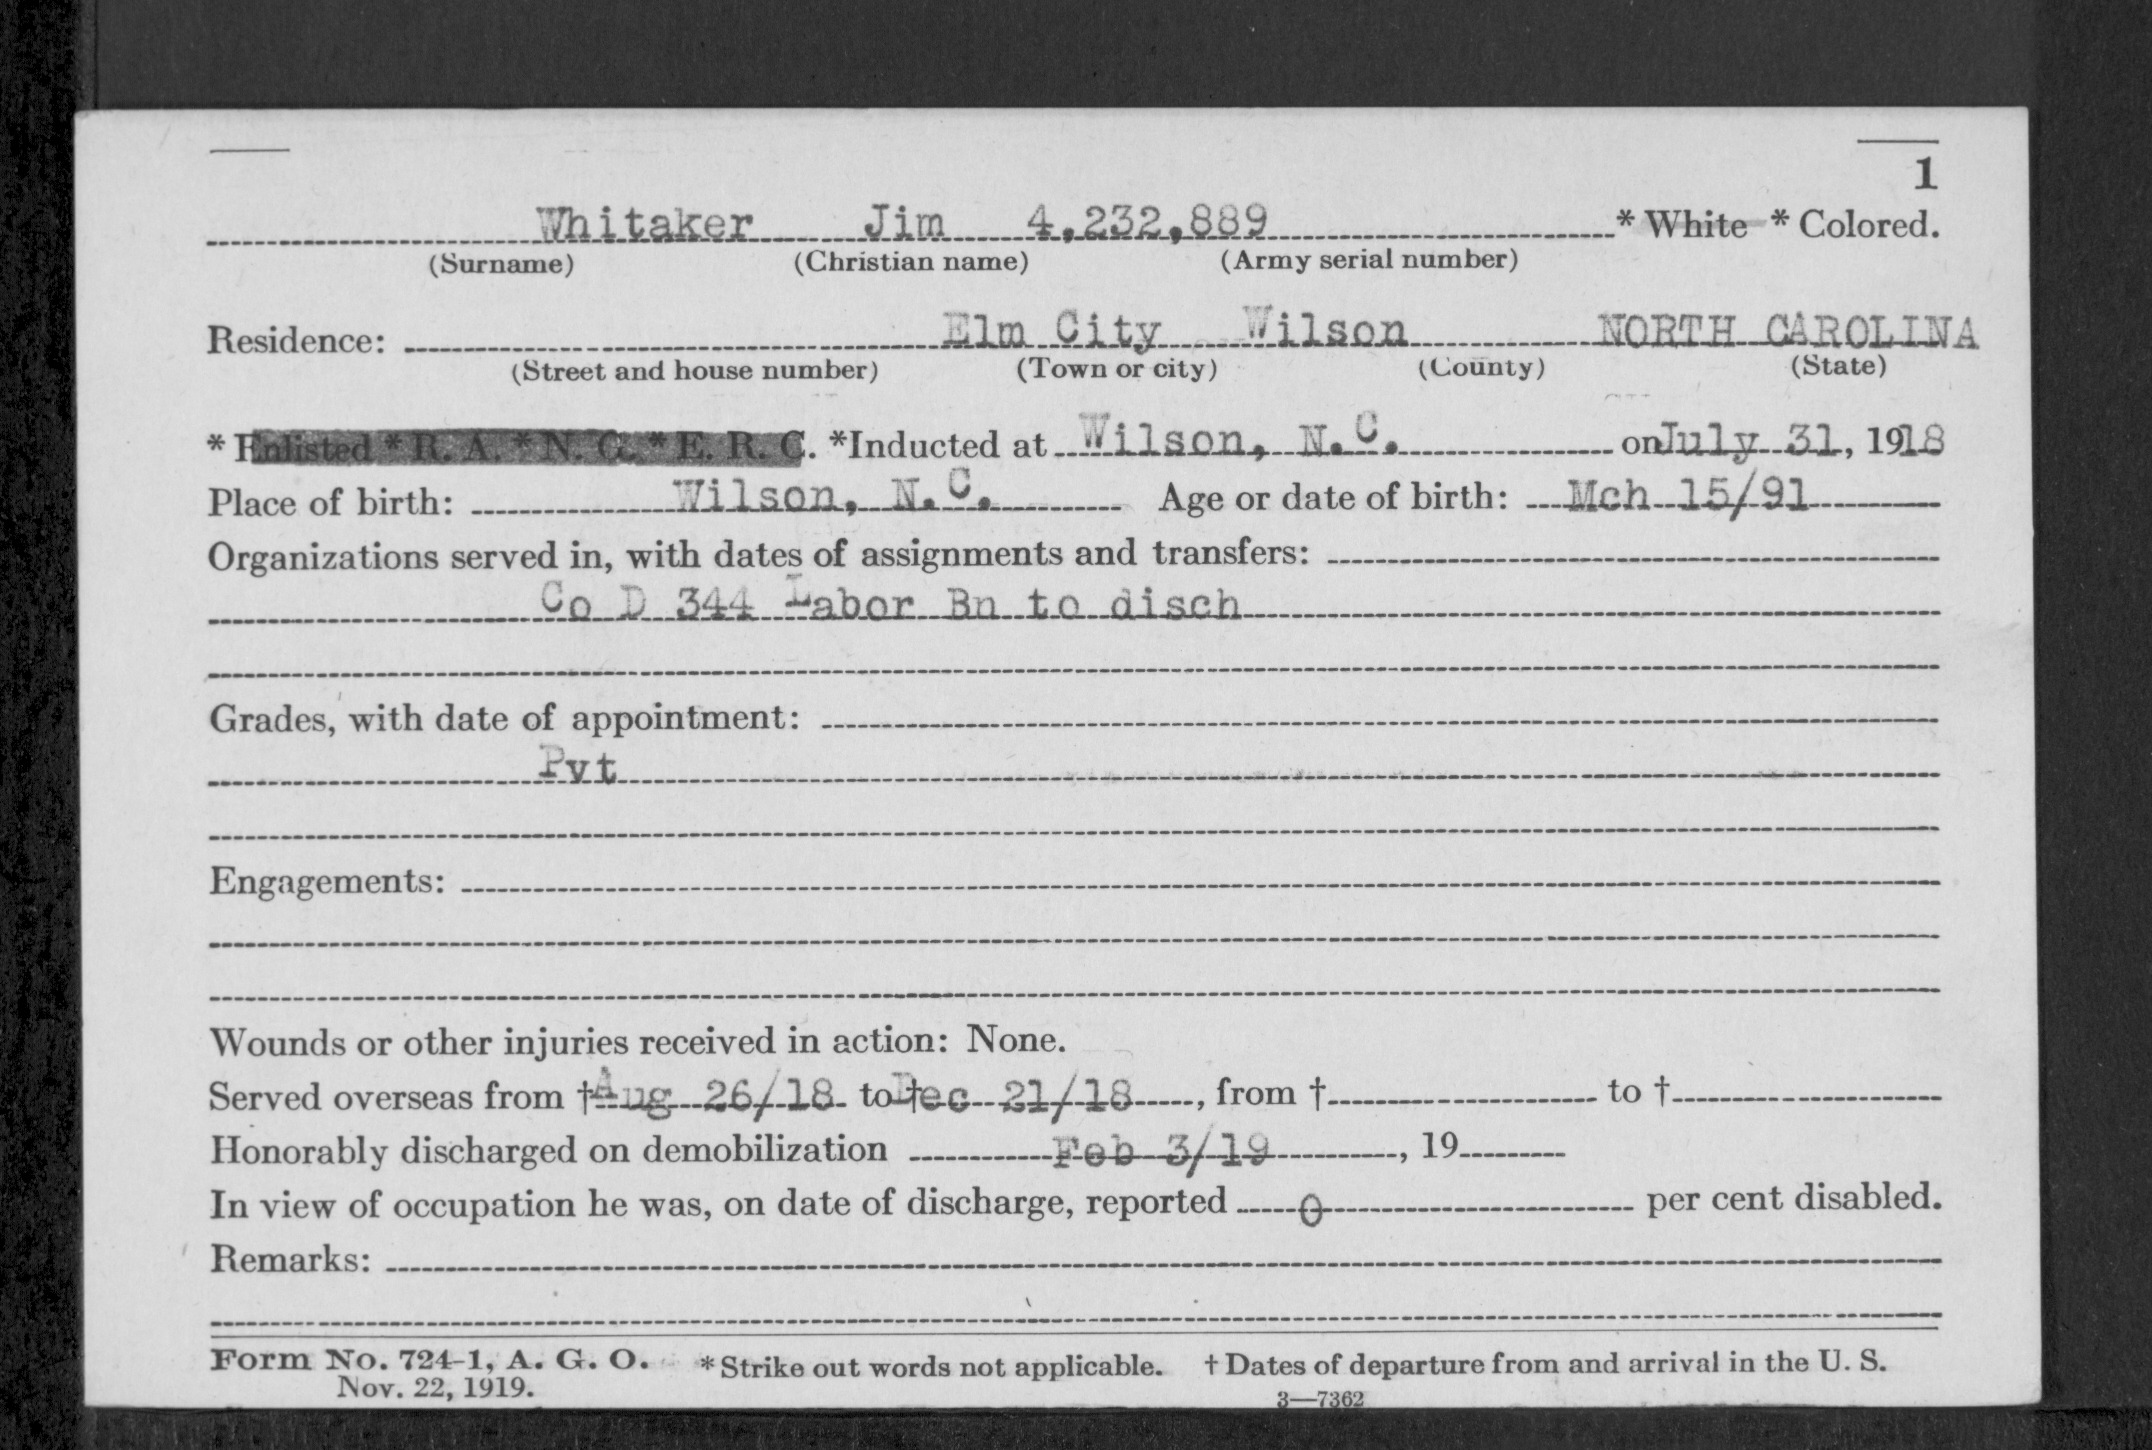 1
Whitaker Jim 4,232,889 * White * Colored.
(Surname) (Christian name) (Army serial number)
Residence: Elm City Wilson NORTH CAROLINA
(Street and house number) (Town or city) (County) (State)
* Enlisted * R. A. * N. G. * E. R. C. *Inducted at Wilson, N.C. on July 31, 1918
Place of birth: Wilson, N.C. Age or date of birth: Mch 15/91
Organizations served in, with dates of assignments and transfers:
Co D 344 Labor Bn to disch
Grades, with date of appointment:
Pvt
Engagements:
Wounds or other injuries received in action: None.
Served overseas from † Aug 26/18 to † Dec 21/18, from † to †
Honorably discharged on demobilization Feb 3/19, 19
In view of occupation he was, on date of discharge, reported 0 per cent disabled.
Remarks:
Form No. 724-1, A. G. O. * Strike out words not applicable. † Dates of departure from and arrival in the U. S.
Nov. 22, 1919. 3—7362